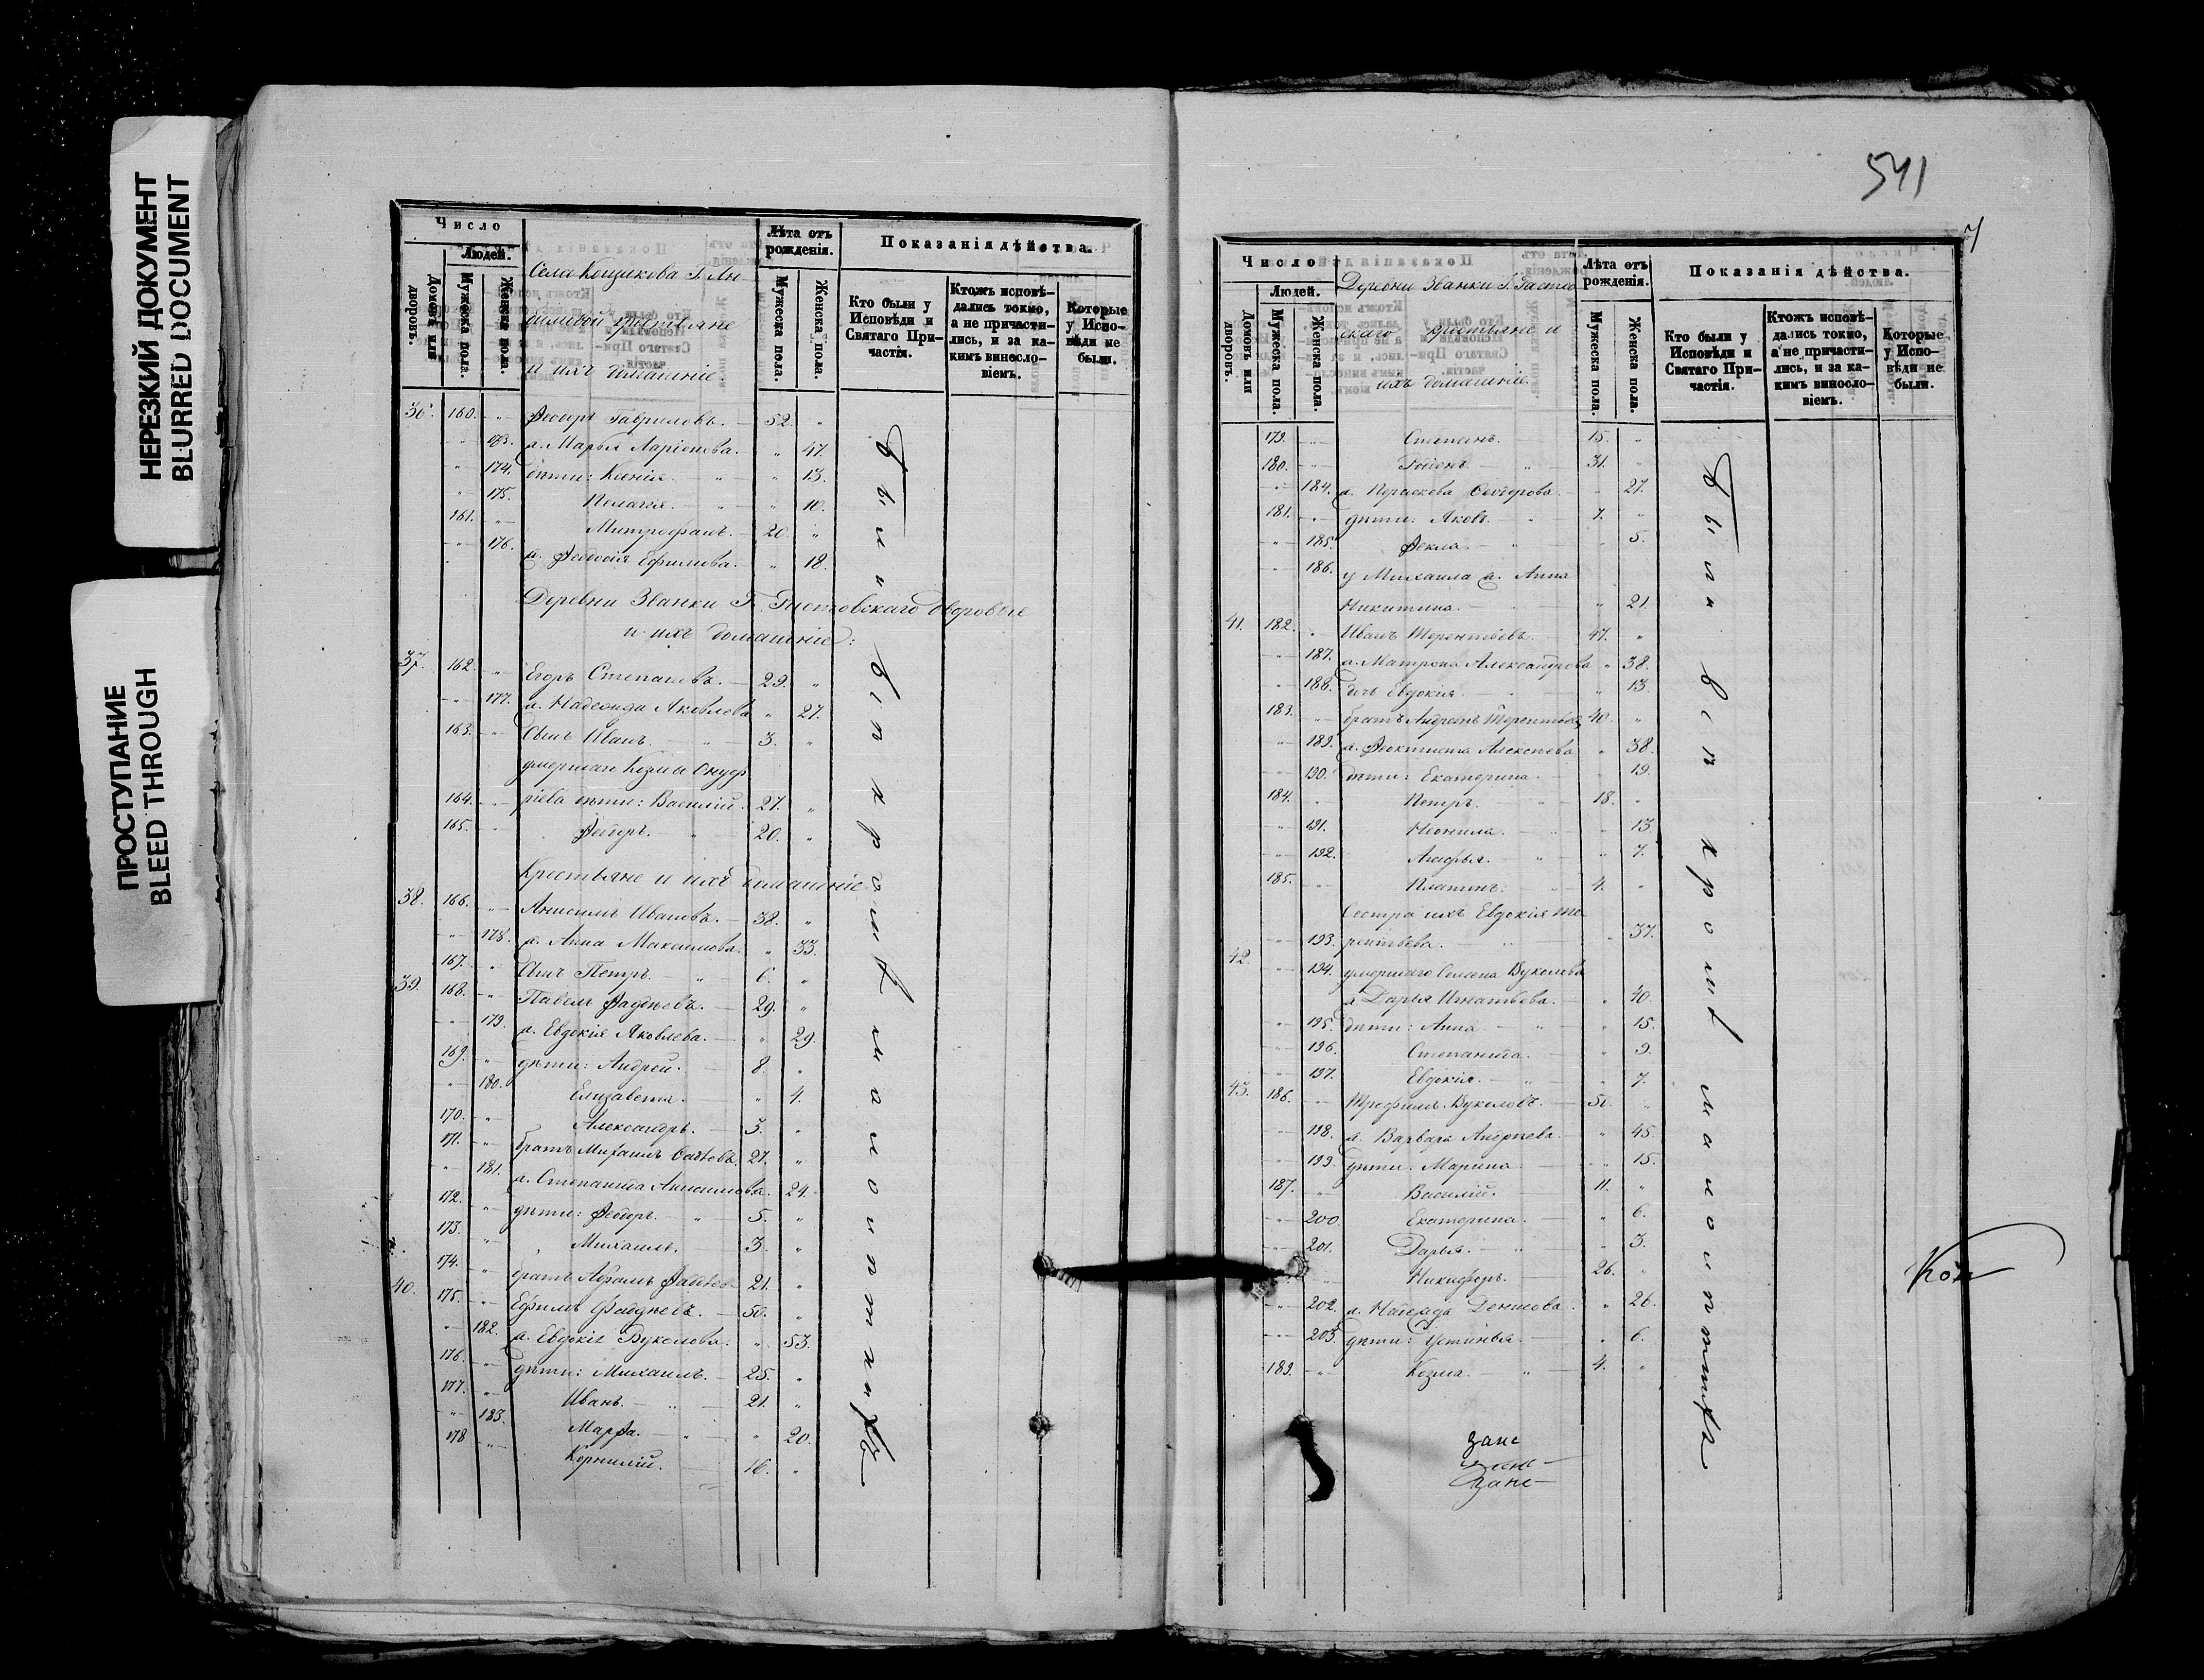 НЕРЕЗКИЙ ДОКУМЕНТ
BLURRED DOCUMENT
ПРОСТУПАНИЕ
BLEED THROUGH
Число
Людей.
Домовъ или дворовъ.
Мужеска пола.
Женска пола.
Села Г. Ан-
крестьяне
и ихъ домашніе.
Лѣта отъ рожденія.
Мужеска пола.
Женска пола.
Показанія дѣйства.
Кто были у Исповѣди и Святаго При-частія.
Ктожъ исповѣ-дались токмо, а не причасти-лись, и за ка-кимъ винослo-віемъ.
Которые у Испо-вѣди не были.
36. 160. Ѳедоръ Гавриловъ. 52.
173. ж. Марья Ларіонова. 47.
174. дѣти: Ксенія. 13.
175. Пелагія. 10.
161. Митрофанъ. 20.
176. ж. Ѳеодосія Ефимова. 18.
Деревни Званки Г. дворовые
и ихъ домашніе:
37. 162. Егоръ Степановъ. 29.
177. ж. Надежда Яковлева 27.
163. Сынъ Иванъ. 3.
умершаго Козмы Онуф
164. ріева дѣти: Василій. 27.
165. Ѳедоръ. 20.
Крестьяне и ихъ домашніе
38. 166. Анисимъ Ивановъ. 38.
178. ж. Анна Максимова. 33.
167. Сынъ Петръ. 6.
39. 168. Павелъ Ѳаддѣевъ. 29.
179. ж. Евдокія Яковлева. 29.
169. дѣти: Андрей. 8.
180. Елизавета. 4.
170. Александръ. 3.
171. братъ Михаилъ 27.
181. ж. Степанида Анисимова. 24.
172. дѣти: Ѳедоръ. 5.
173. Михаилъ. 3.
174. братъ Абрамъ Ѳаддѣев 21.
40. 175. Ефимъ Фаддѣевъ. 50.
182. ж. Евдокія Вуколова. 53.
176. дѣти: Михаилъ. 25.
177. Иванъ. 21.
183. Марѳа. 20.
178 Корнилій. 16.
Были
541
7
Число
Людей.
Домовъ или дворовъ.
Мужеска пола.
Женска пола.
Деревни Званки Г.
скаго крестьяне и
ихъ домашніе.
Лѣта отъ рожденія.
Мужеска пола.
Женска пола.
Показанія дѣйства.
Кто были у Исповѣди и Святаго При-частія.
Ктожъ исповѣ-дались токмо, а не причасти-лись, и за ка-кимъ винослo-віемъ.
Которые у Испо-вѣди не были.
179. Степанъ. 15.
180. Родіонъ. 31.
184. ж. Параскева Ѳедорова. 27.
181. дѣти: Яковъ. 7.
185. Ѳекла. 5.
186. у Михаила ж. Анна
Никитина. 21.
41. 182. Иванъ Терентьевъ. 47.
187. ж. Матрона Александрова 38.
188. дочь Евдокія. 13.
183. братъ Андреянъ Терентьев 40.
189. ж. Ѳеоктиста Алексѣева 38.
190. дѣти: Екатерина. 19.
184. Петръ. 18.
191. Неонила. 13.
192. 7.
185. Платонъ. 4.
Сестра ихъ Евдокія Те
193. рентьева. 37.
42. 194. умершаго Семена Вуколова
ж Дарья Игнатьева. 40.
195. дѣти: Анна 15.
196. Степанида. 9.
197. Евдокія. 7.
43. 186. Трофимъ Вуколовъ. 50.
198. ж. Варвара Андреева. 45.
199. дѣти: Марина. 15.
187. Василій. 11.
200. Екатерина. 6.
201. Дарья. 3.
Никифоръ. 26.
202. ж. Надежда Денисова. 26.
203. дѣти: Устинья. 6.
189. Козма. 4.
Были